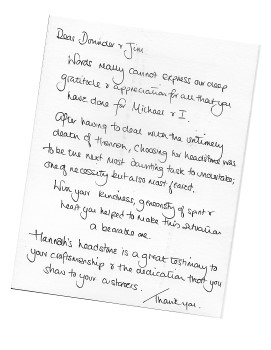 Dear Dorinder & Jim
Words really cannot express our deep
gratitude & appreciation for all that you
have done for Michael & I.
After having to deal with the untimely
death of Hannah, choosing her headstone was
to be the next most daunting task to undertake;
one of necessity but also most feared.
With your kindness, generosity of spirit &
heart you helped to make this situation
a bearable one.
Hannah's headstone is a great testimony to
your craftsmanship & the dedication that you
show to your customers.
Thank you.